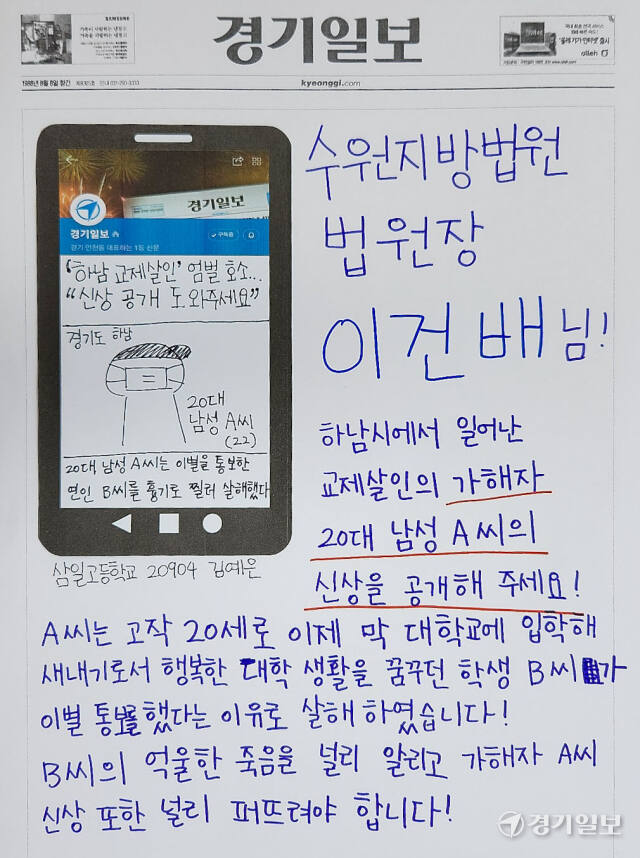 SAMSUNG
경기일보
olleh
1988년 8월 8일 창간
kyeonggi.com
경기일보
구독중
경기 인천을 대표하는 1등 신문
‘하남 교제살인’ 엄벌 호소...
“신상 공개 도와주세요”
경기도 하남
20대
남성 A씨
(22)
20대 남성 A씨는 이별을 통보한
연인 B씨를 흉기로 찔러 살해했다
삼일고등학교 20904 김예은
수원지방법원
법원장
이건배님!
하남시에서 일어난
교제살인의 가해자
20대 남성 A씨의
신상을 공개해 주세요!
A씨는 고작 20세로 이제 막 대학교에 입학해
새내기로서 행복한 대학 생활을 꿈꾸던 학생 B씨가
이별 통보를 했다는 이유로 살해 하였습니다!
B씨의 억울한 죽음을 널리 알리고 가해자 A씨
신상 또한 널리 퍼뜨려야 합니다!
경기일보